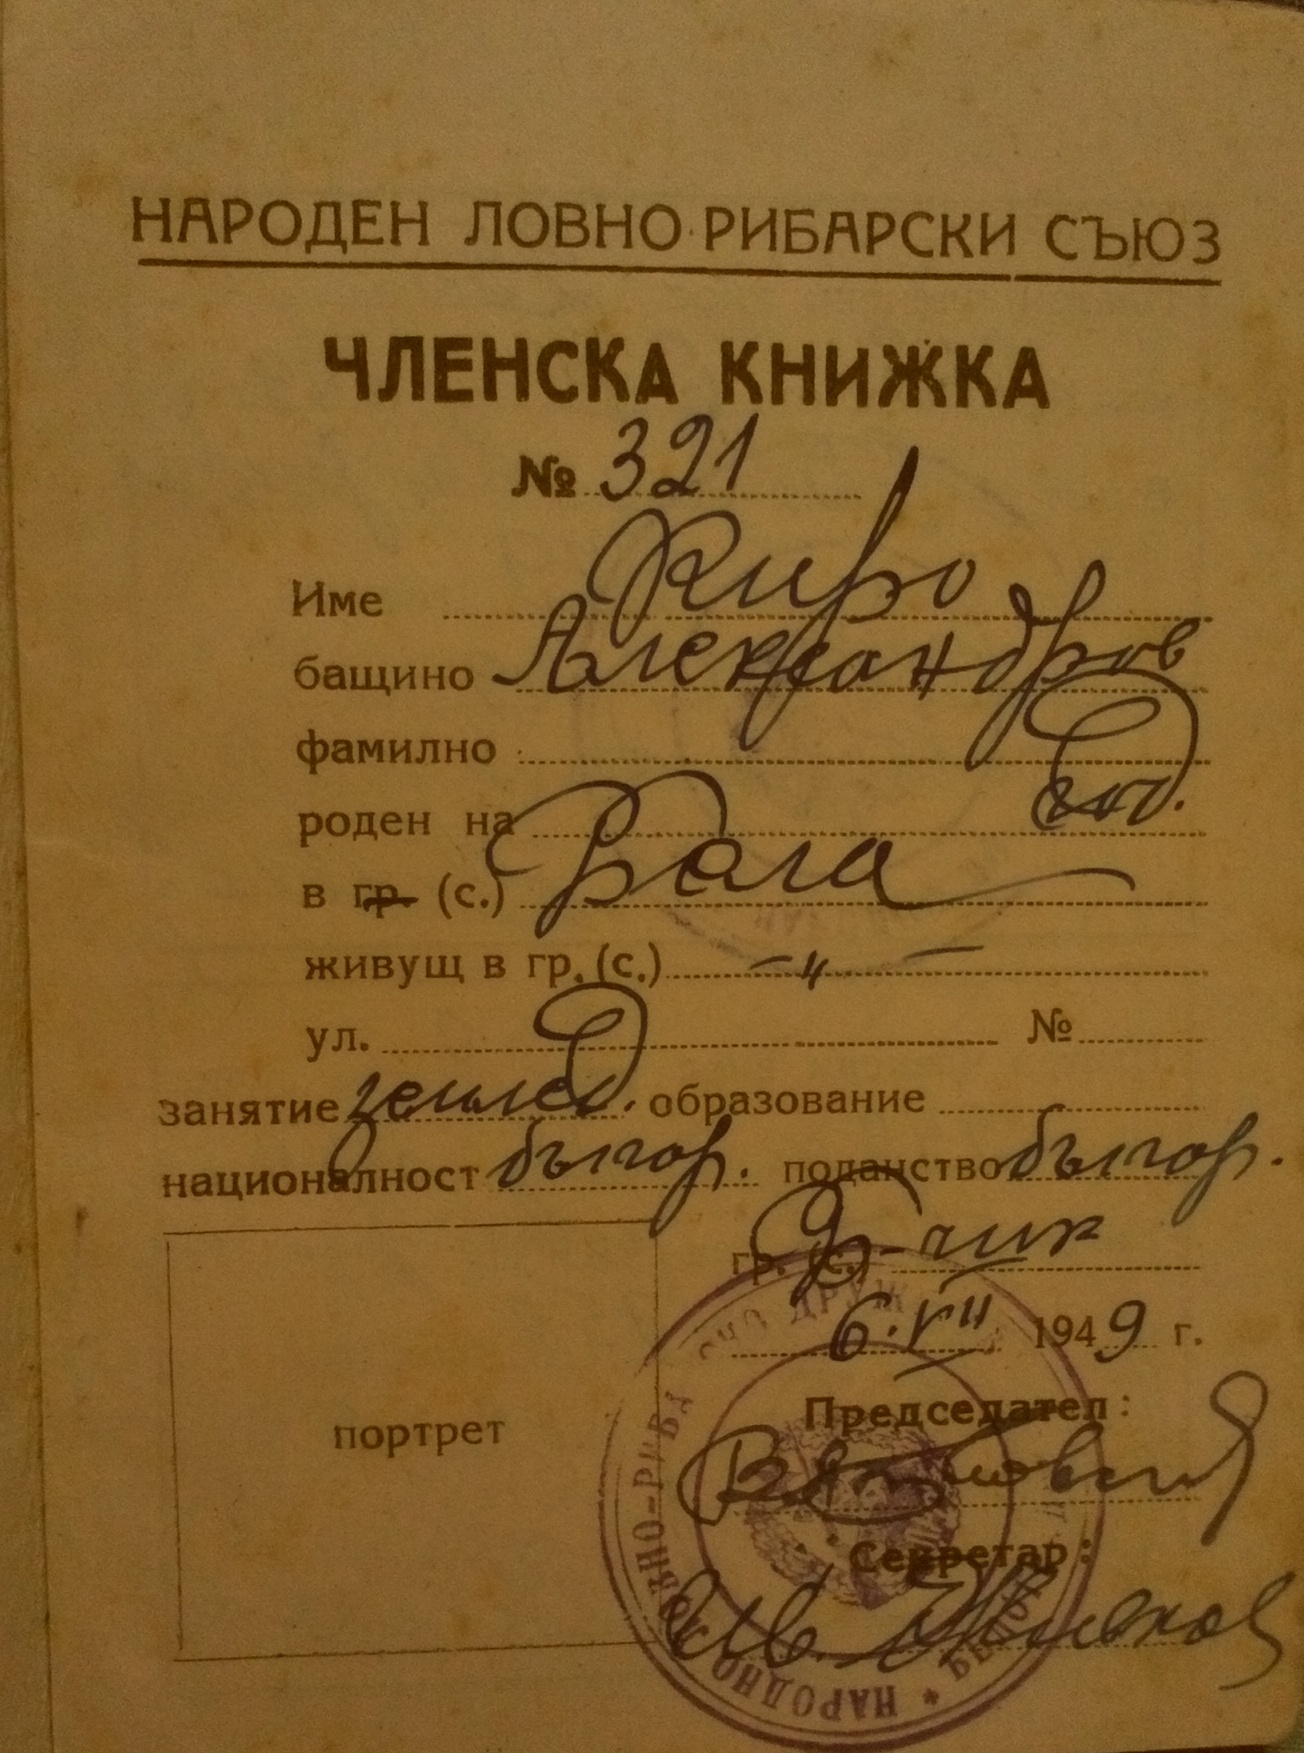 НАРОДЕН ЛОВНО-РИБАРСКИ СЪЮЗ
ЧЛЕНСКА КНИЖКА
№ 321
Име Киро
бащино Александров
фамилно
роден на год.
в гр. (с.)
живущ в гр. (с.) –〃–
ул. №
занятие землед. образование
националност българ. поданство българ.
гр. (с.) Б-чик
6.VII 1949 г.
портрет
Председател:
Секретар:
НАРОДНО ЛОВНО-РИБАРСКО ДРУЖ